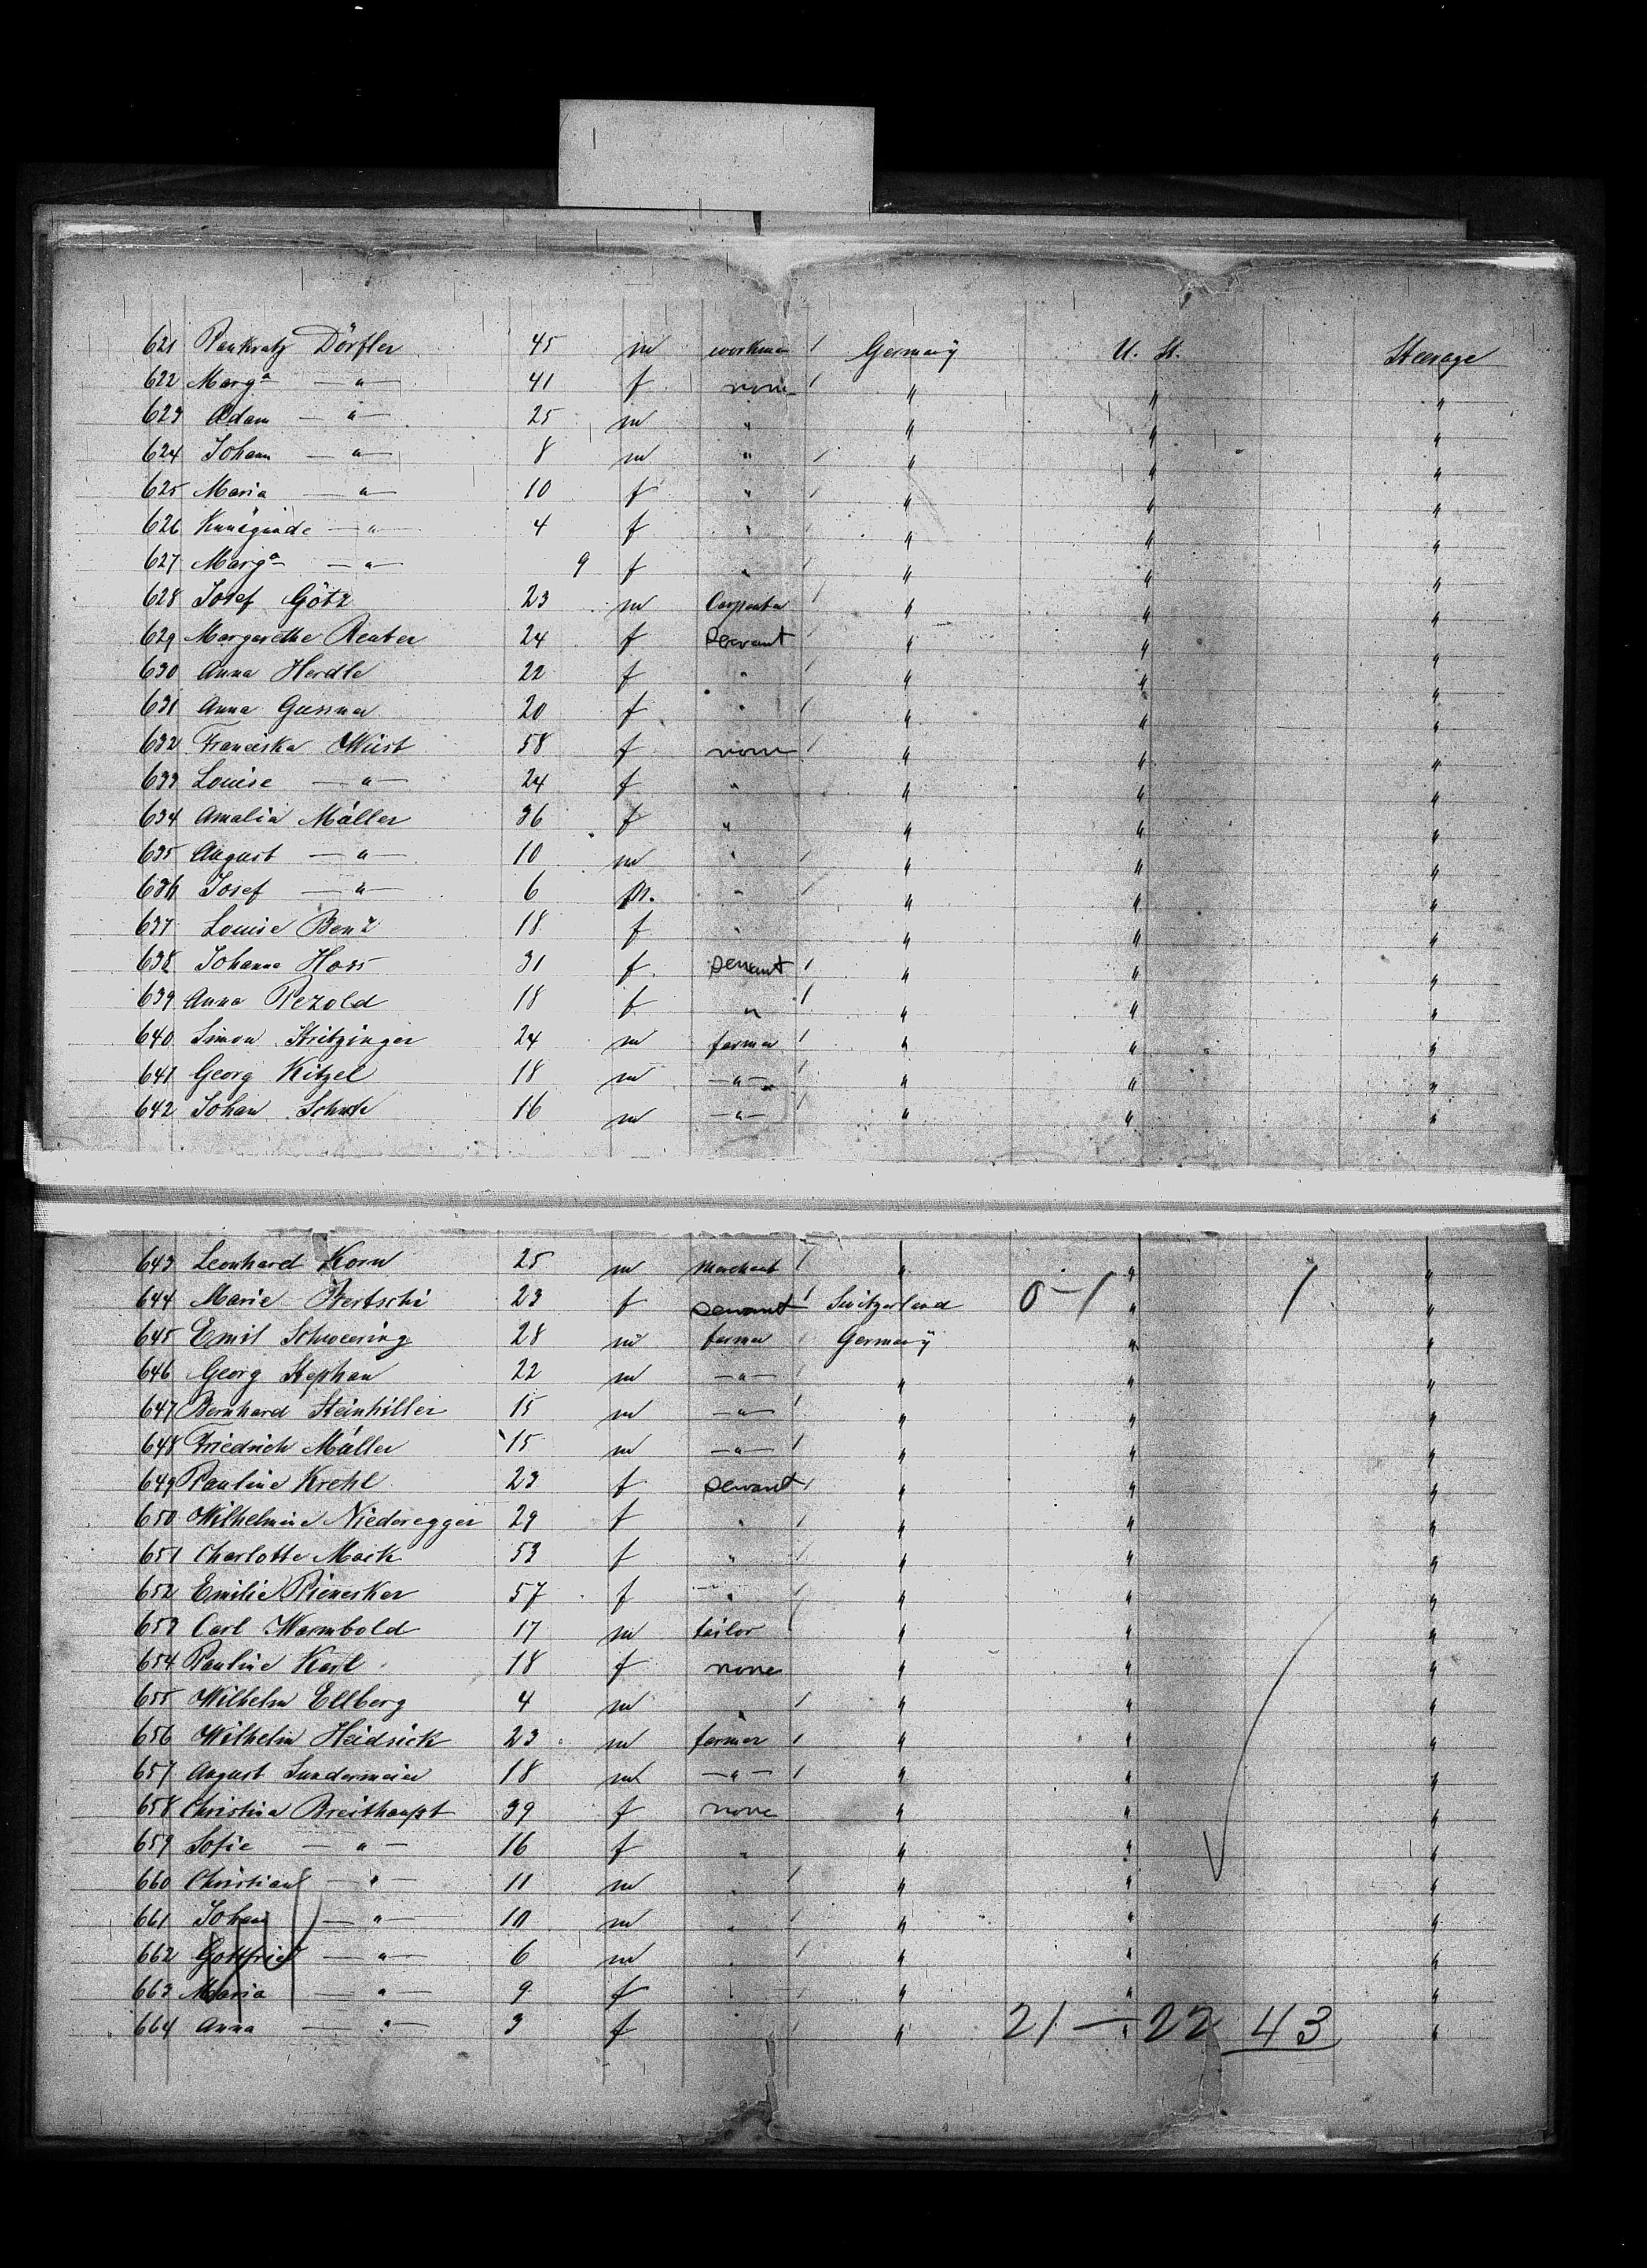 621 Pankratz Dörfler 45 m workman / Germany U. St. Steerage
622 Marg.a — " — 41 f none / " " "
623 Adam — " — 25 m " " " "
624 Johann — " — 8 m " / " " "
625 Maria — " — 10 f " / " " "
626 — " — 4 f " / " " "
627 Marg.a — " — 9 f " / " " "
628 Josef Götz 23 m Carpenter / " " "
629 Margarethe Reuter 24 f Servant / " " "
630 Anna Herdle 22 f " / " " "
631 Anna 20 f " / " " "
632 Franciska Wüst 58 f none / " " "
633 Louise — " — 24 f " " " "
634 Amalia Müller 36 f " " " "
635 August — " — 10 m " / " " "
636 Josef — " — 6 m. " / " " "
637 Louise Benz 18 f " " " "
638 Johanna Hoss 31 f. Servant / " " "
639 Anna Pezold 18 f " / " " "
640 Simon Stritzinger 24 m farmer / " " "
641 Georg Kitzel 18 m — " — / " " "
642 Johan 16 m — " — / " " "
643 Leonhard Korn 25 m Merchant / " " "
644 Marie Bertschi 23 f Servant / Switzerland 0 - 1 " 1 "
645 Emil Schweering 28 m farmer / Germany " "
646 Georg Stephan 22 m — " — / " " "
647 Bernhard Steinhiller 15 m — " — / " " "
648 Friedrich Müller 15 m — " — / " " "
649 Pauline Krehl 23 f Servant / " " "
650 Wilhelmine Niederegger 29 f " / " " "
651 Charlotte Mack 53 f " / " " "
652 Emilie Rienesker 57 f " / " " "
653 Carl Warmbold 17 m tailor / " " "
654 Pauline Karl 18 f none " " "
655 Wilhelm Ellberg 4 m " / " " "
656 Wilhelm Heidsick 23 m farmer / " " "
657 August Sundermeier 18 m — " — / " " "
658 Christina Breithaupt 39 f none " " "
659 Sofie — " — 16 f " " " "
660 Christian — " — 11 m " / " " "
661 Johan — " — 10 m " / " " "
662 Gottfried — " — 6 m " / " " "
663 Maria — " — 9 f " / " " "
664 Anna — " — 3 f " / " 21 — " 22 43 "